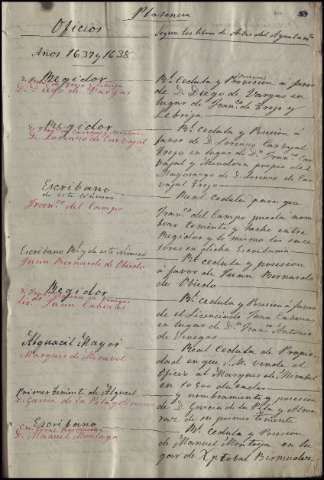 Plasencia
Oficios
Según los libros de Actas del Ayuntam.to
Años 1637 y 1638
Regidor
D. Diego de Vargas
Rl. Cedula y Provision à favor
de D. Diego de Vargas en
lugar de Fran.co de Trejo y
Lebrija
Regidor
D. Lorenzo de Carvajal
Rl. Cedula y Posesion á
favor de D. Lorenzo Carvajal
Trejo en lugar de D.n Fran.co Car
vajal y Mendoza propio del
Mayorazgo de D. Alonso de Car
vajal Trejo
Escribano
de este número
Fran.co del Campo
Real Cedula para que
Fran.co del Campo pueda nom
brar teniente y hable entre
Regidor y lo mismo los suce
sores en dicha Escribania
Escribano Rl. y de este Número
Juan Bernardo de Oviedo
Rl. cedula y posesion
á favor de Juan Bernardo
de Oviedo
Regidor
Lic.do Juan Cabezas
Rl. Cedula y Posesion á favor
de el Licenciado Juan Cabezas
en lugar de D.n Fran.co Antonio
de Venegas
Alguacil Mayor
Marques de Mirabel
Real Cedula de Propie
dad en que S. M. vende el
Oficio al Marques de Mirabel
Primer Teniente de Alguacil
D. Garcia de la Pila y
y nombramiento y posesion
de D. Garcia de la Pila y
de su primer Teniente
Escribano
D. Manuel Montoya
Rl. Cedula y Posesion
de Manuel Montoya en lu
gar de Xptobal Bermudez